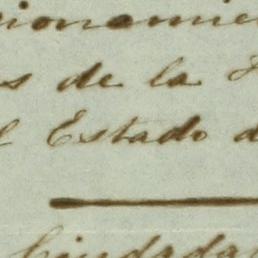 cionamie
s de la
l Estado d
Ciudada